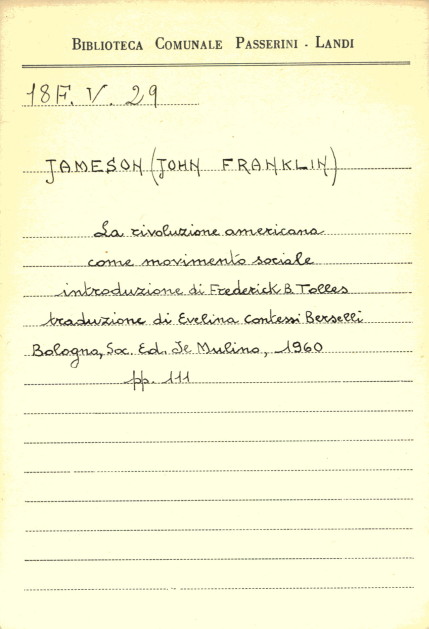 BIBLIOTECA COMUNALE PASSERINI - LANDI
18F. V. 29
JAMESON (JOHN FRANKLIN)
La rivoluzione americana
come movimento sociale
introduzione di Frederick B. Tolles
traduzione di Evelina Contessi Berselli
Bologna, Soc. Ed. Il Mulino, 1960
pp. 111